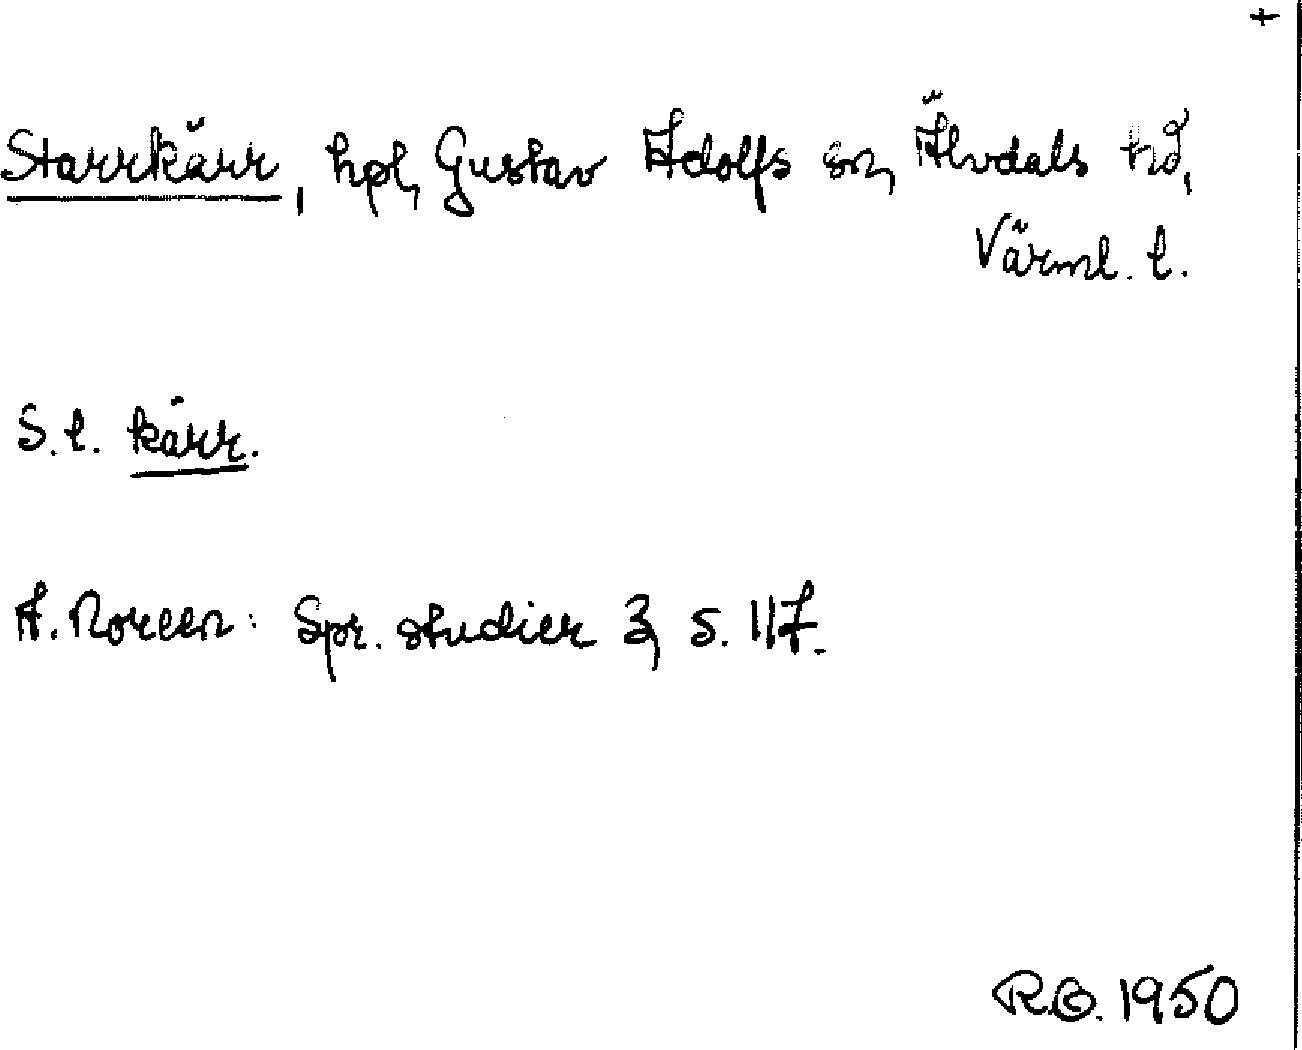 +
Starrkärr, hpl, Gustav Adolfs sn, Älvdals hd,
Värml. l.
S. l. kärr.
A. Noreen: Spr. studier 3, s. 117.
R.O. 1950